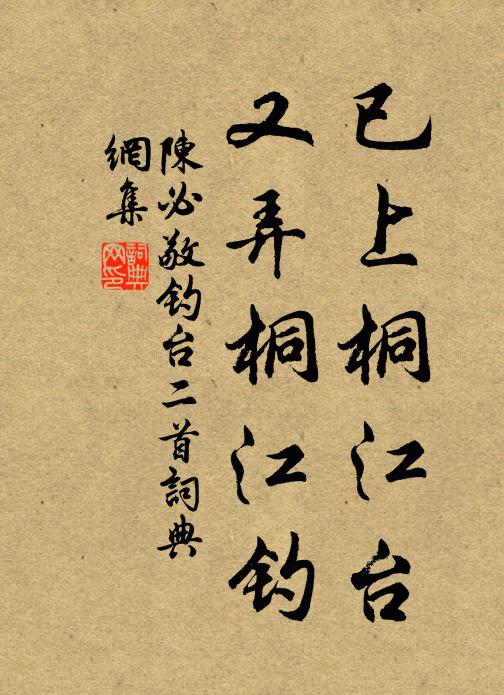 已上桐江台
又弄桐江钓
陳必敬钓台二首詞典
網集
詞典网印